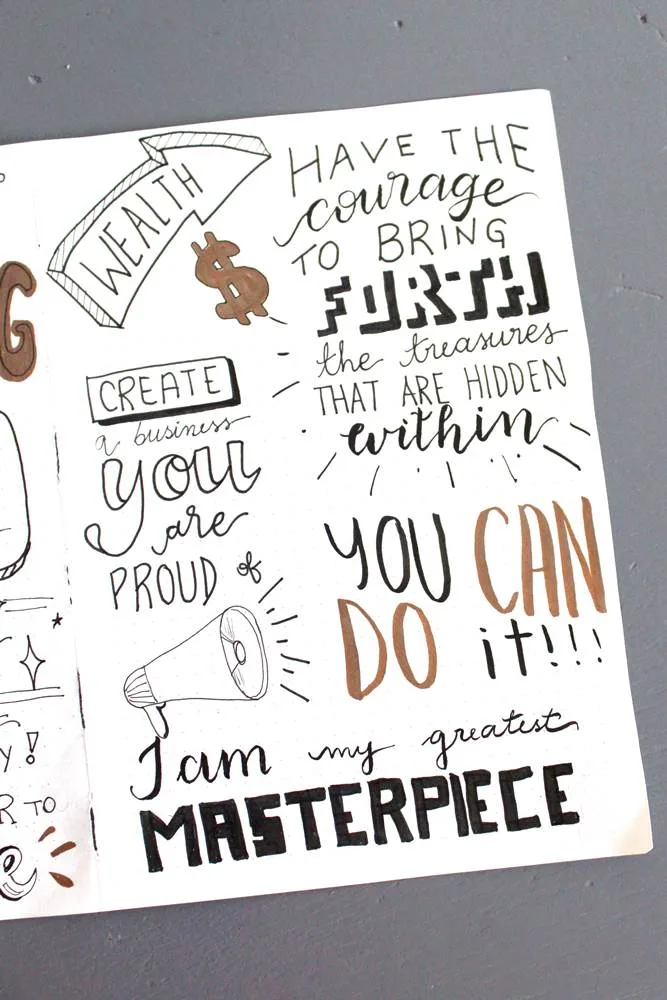 WEALTH
$
HAVE THE
courage
TO BRING
FORTH
the treasures
THAT ARE HIDDEN
within
CREATE
a business
you
are
PROUD of
YOU CAN
DO it!!!
I am my greatest
MASTERPIECE
G
Y!
R TO
e